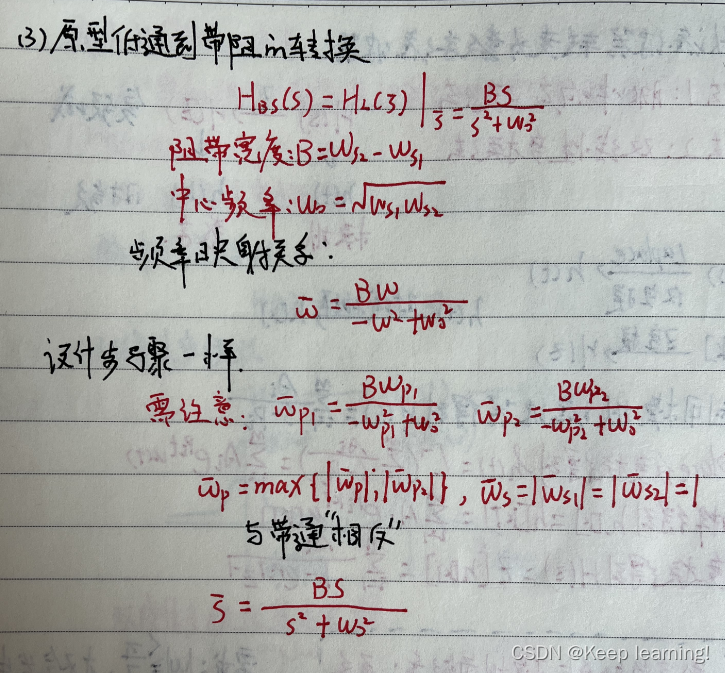 (3) 原型低通到带阻的转换
H_BS(s) = H_L(s̄)|s̄ = Bs/(s²+ω₀²)
阻带宽度: B = ω_s2 - ω_s1
中心频率: ω₀ = √(ω_s1 ω_s2)
频率映射关系:
ω̄ = Bω/(-ω²+ω₀²)
设计步骤一样.
需注意: ω̄_p1 = Bω_p1/(-ω_p1²+ω₀²) ω̄_p2 = Bω_p2/(-ω_p2²+ω₀²)
ω̄_p = max{|ω̄_p|, |ω̄_p2|}, ω̄_s = |ω̄_s1| = |ω̄_s2| = 1
与带通"相反"
s̄ = Bs/(s²+ω₀²)
CSDN @Keep learning!